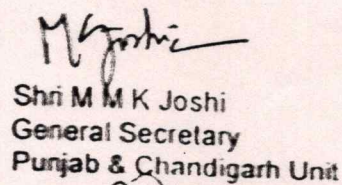 MKJoshi
Shri M M K Joshi
General Secretary
Punjab & Chandigarh Unit